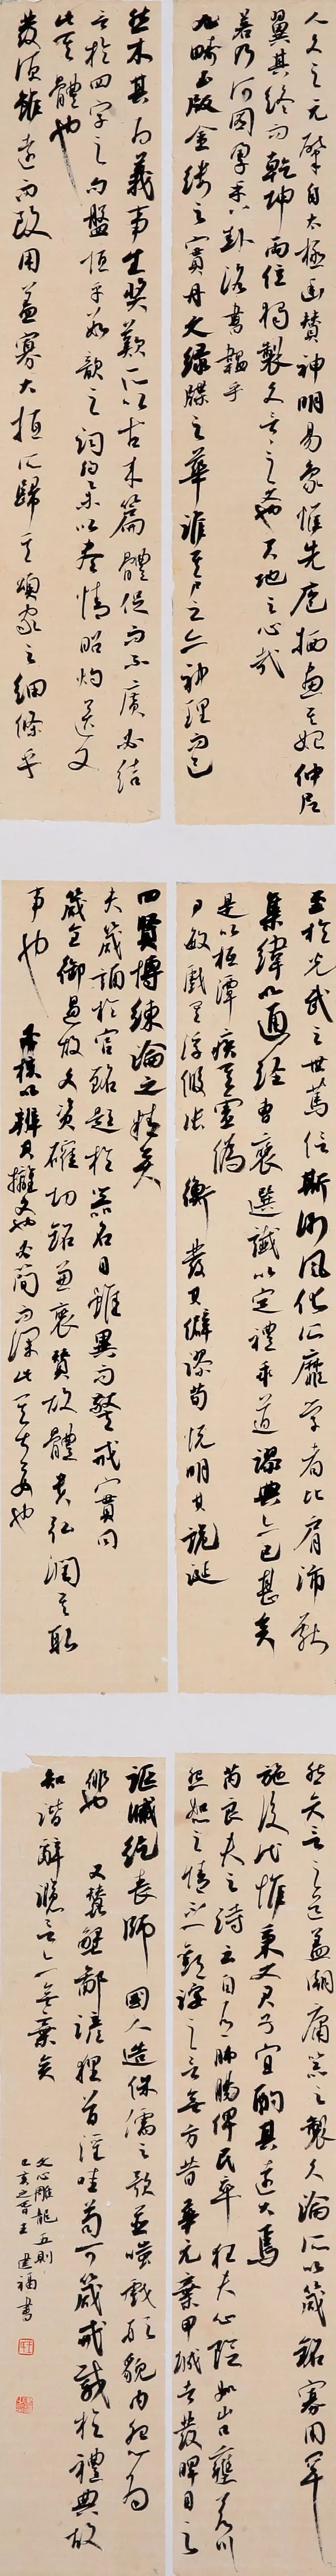 人文之元肇自太極幽贊神明易象惟先庖犧畫其始仲尼
翼其終而乾坤兩位獨製文言言之文也天地之心哉
若乃河圖孕八卦洛書韞乎
九疇玉版金鏤之實丹文綠牒之華誰其尸之亦神理而已
然本其為義事生獎歎所以古來篇體促而不廣必結
言於四字之句盤桓乎數韻之詞約舉以盡情昭灼送文
此其體也
發源雖遠而致用蓋寡大抵所歸其頌家之細條乎
至於光武之世篤信斯術風化所靡學者比肩沛獻
集緯以通經曹褒選讖以定禮乖道謬典亦已甚矣
是以桓譚疾其虛偽
尹敏戲其浮假張衡發其僻謬荀悅明其詭誕
四賢博練論之精矣
夫箴誦於官銘題於器名目雖異而警戒實同
箴全御過故文資確切銘兼褒贊故體貴弘潤其取
事也必核以辨其摛文也必簡而深此其大要也
然矢言之道蓋闕庸器之製久淪所以箴銘寡用罕
施後代惟秉文君子宜酌其遠大焉
芮良夫之詩云自有肺腸俾民卒狂夫心險如山口壅若川
怨怒之情不一歡謔之言無方昔華元棄甲城者發睅目之
謳臧紇喪師國人造侏儒之歌並嗤戲形貌內怨為
俳也又蠶蟹鄙諺貍首淫哇苟可箴戒載於禮典故
知諧辭讔言亦無棄矣
文心雕龍五則
己亥之春王建福書